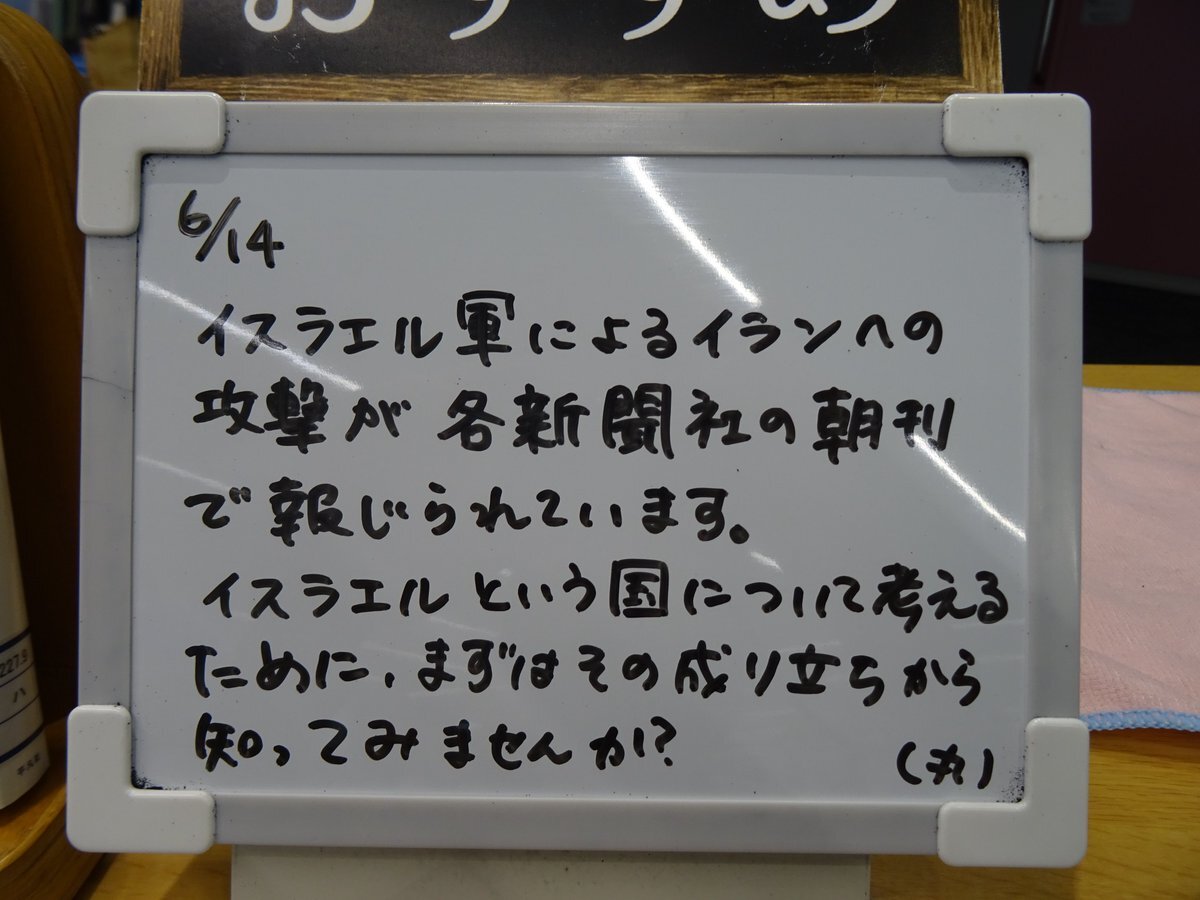 おすすめ
6/14
イスラエル軍によるイランへの
攻撃が各新聞社の朝刊
で報じられています。
イスラエルという国について考える
ために、まずはその成り立ちから
知ってみませんか?
(丸)
227.9
ハ